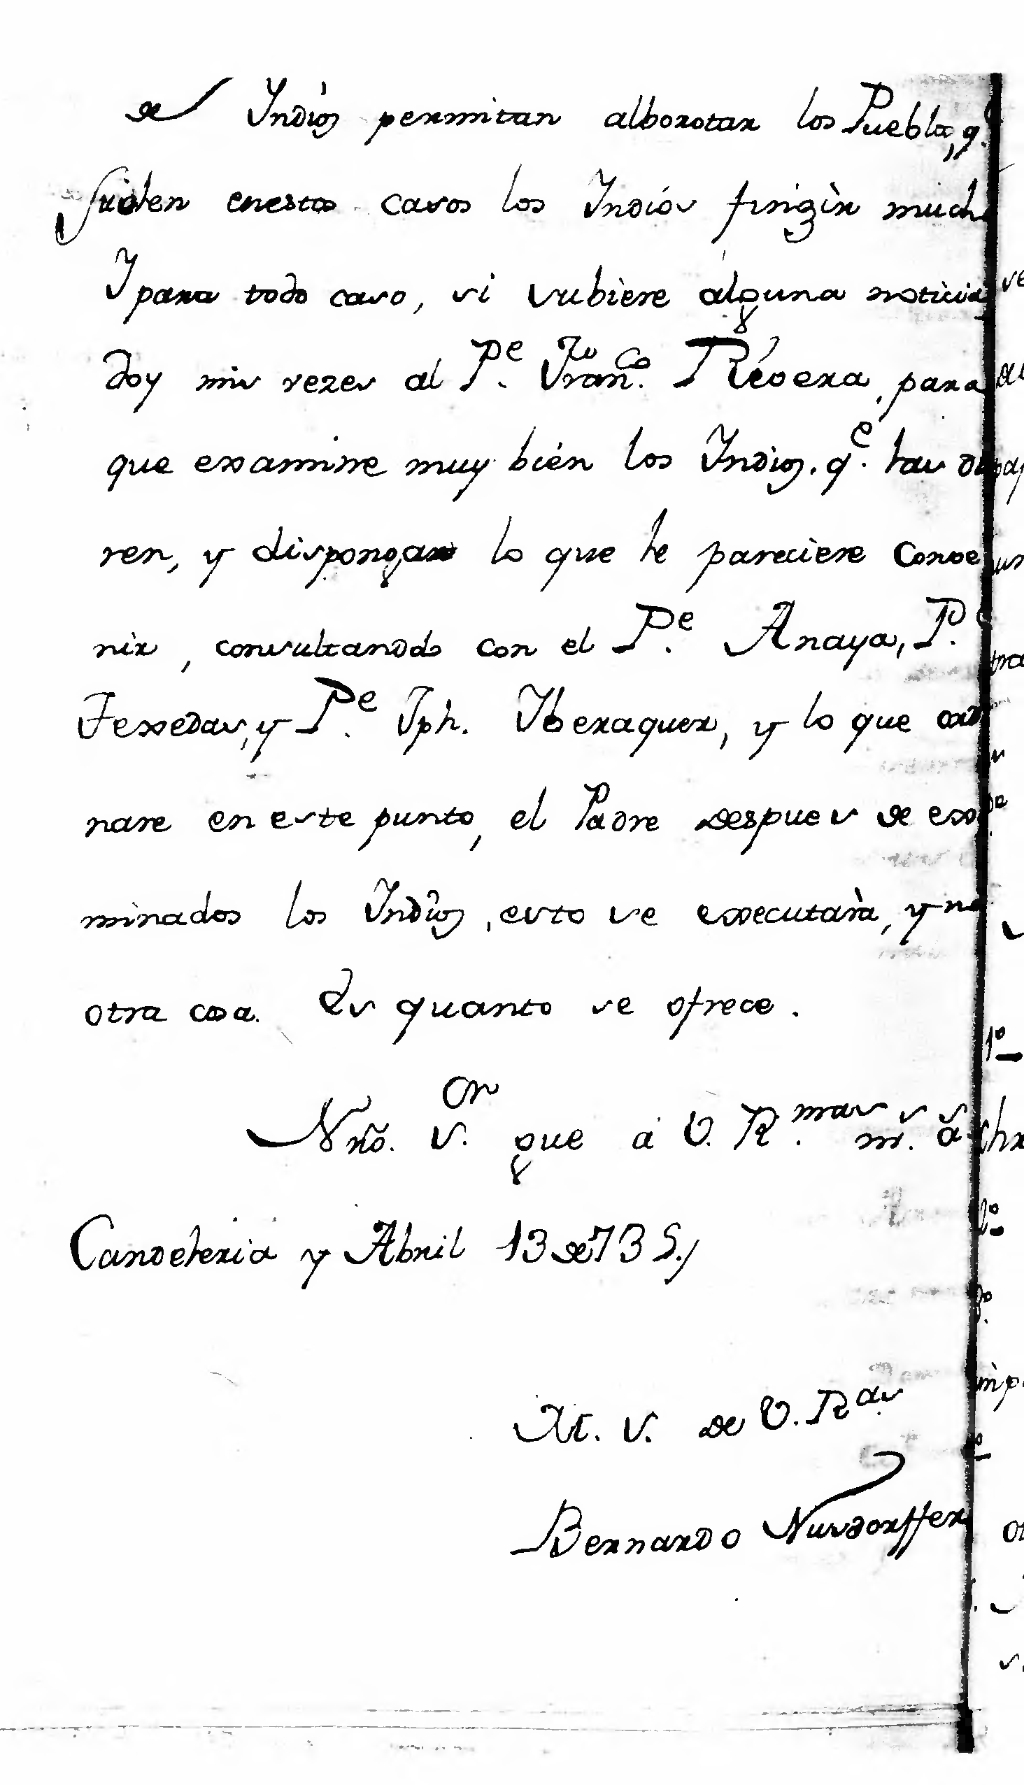 de Indios permitan alborotar los Pueblos, q.
suelen enestos casos los Indios fingìr mucho
Y para todo caso, si vubiere alguna noticia,
doy mis vezes al P.e Fran.co Rivera, para
que examine muy bien los Indios. q.e las di
ren, y dispongan lo que le pareciere conve
nir, consultandolo con el P.e Anaya, P.e
Texedas, y P.e Jph. Yberaquer, y lo que orde
nare en este punto, el Padre despues de exa
minados los Indios, esto se executarà, y no
otra cosa. Es quanto se ofrece.
Nrõ. S.or que a V. R.mas m.s a.s
Candeleria y Abril 13 de 735./
M. S. de V. R.as
Bernardo Nusdorffer